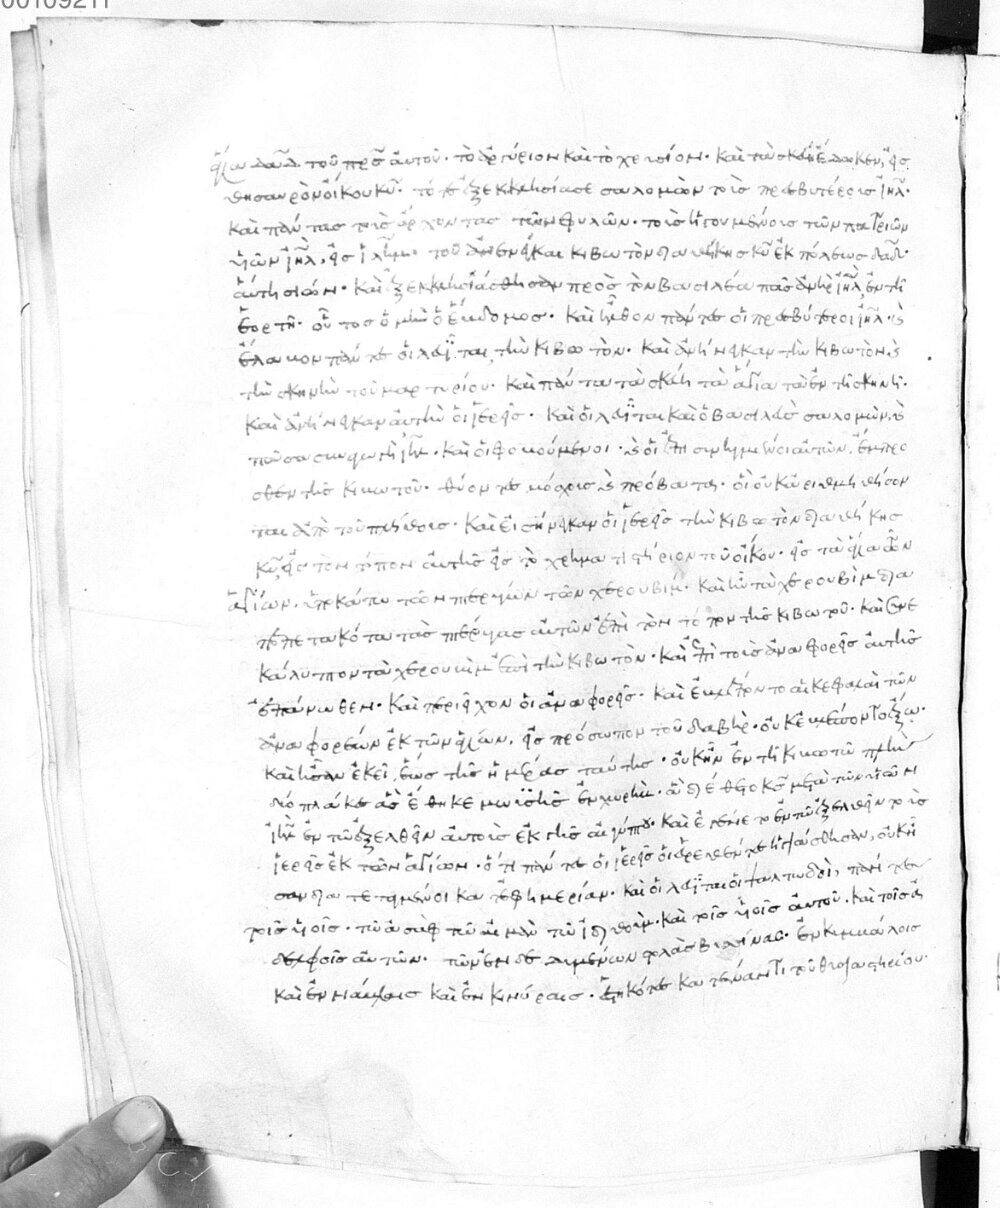 00109211
ἅγια δαδ τοῦ πρς αὐτοῦ· τὸ ἀργύριον καὶ τὸ χρυσίον· καὶ τὰ σκεύη ἔδωκεν εἰς
θησαυρὸν οἴκου κυ· τότε ἐξεκκλησίασε σαλομὼν τοὺς πρεσβυτέρους ιηλ·
καὶ πάντας τοὺς ἄρχοντας τῶν φυλῶν· τοὺς ἡγουμένους τῶν πατριῶν
υἱῶν ιηλ, εἰς ιλημ· τοῦ ἀνενέγκαι κιβωτὸν διαθήκης κυ ἐκ πόλεως δαδ·
αὕτη σιών· καὶ ἐξεκκλησιάσθησαν πρὸς τὸν βασιλέα πᾶς ἀνὴρ ιηλ ἐν τῇ
ἑορτῇ· οὗτος ὁ μὴν ὁ ἕβδομος· καὶ ἦλθον πάντες οἱ πρεσβύτεροι ιηλ· καὶ
ἔλαβον πάντες οἱ λευῖται τὴν κιβωτόν· καὶ ἀνήνεγκαν τὴν κιβωτὸν καὶ
τὴν σκηνὴν τοῦ μαρτυρίου· καὶ πάντα τὰ σκεύη τὰ ἅγια τὰ ἐν τῇ σκηνῇ·
καὶ ἀνήνεγκαν αὐτὴν οἱ ἱερεῖς· καὶ οἱ λευῖται καὶ ὁ βασιλεὺς σαλομών, καὶ
πᾶσα συναγωγὴ ιηλ· καὶ οἱ φοβούμενοι· καὶ οἱ ἐπισυνηγμένοι αὐτῶν, ἔμπρο
σθεν τῆς κιβωτοῦ· θύοντες μόσχους καὶ πρόβατα· οἱ οὐκ ἀριθμηθήσον
ται ἀπὸ τοῦ πλήθους· καὶ εἰσήνεγκαν οἱ ἱερεῖς τὴν κιβωτὸν διαθήκης
κυ εἰς τὸν τόπον αὐτῆς εἰς τὸ χρηματιστήριον τοῦ οἴκου· εἰς τὰ ἅγια τῶν
ἁγίων, ὑποκάτω τῶν πτερύγων τῶν χερουβίμ· καὶ ἦν τὰ χερουβὶμ δια
πεπετακότα τὰς πτέρυγας αὐτῶν ἐπὶ τὸν τόπον τῆς κιβωτοῦ· καὶ συνε
κάλυπτον τὰ χερουβὶμ ἐπὶ τὴν κιβωτόν· καὶ ἐπὶ τοὺς ἀναφορεῖς αὐτῆς
ἐπάνωθεν· καὶ περιεῖχον οἱ ἀναφορεῖς· καὶ ἐβλέποντο αἱ κεφαλαὶ τῶν
ἀναφορέων ἐκ τῶν ἁγίων, εἰς πρόσωπον τοῦ δαβήρ· οὐκ ἐβλέποντο ἔξω·
καὶ ἦσαν ἐκεῖ, ἕως τῆς ἡμέρας ταύτης· οὐκ ἦν ἐν τῇ κιβωτῷ πλὴν
δύο πλάκες ἃς ἔθηκε μωϋσῆς ἐν χωρήβ· ἃ διέθετο κς μετὰ τῶν υἱῶν
ιηλ ἐν τῷ ἐξελθεῖν αὐτοὺς ἐκ γῆς αἰγύπτου· καὶ ἐγένετο ἐν τῷ ἐξελθεῖν τοὺς
ἱερεῖς ἐκ τῶν ἁγίων· ὅτι πάντες οἱ ἱερεῖς οἱ εὑρεθέντες ἡγιάσθησαν, οὐκ ἦ
σαν διατεταγμένοι κατ' ἐφημερίαν· καὶ οἱ λευῖται οἱ ψαλτωδοί, πάντες
τοῖς υἱοῖς· τῷ ἀσὰφ τῷ αἰμὰν τῷ ἰδιθούμ· καὶ τοῖς υἱοῖς αὐτοῦ· καὶ τοῖς ἀ
δελφοῖς αὐτῶν· τῶν ἐνδεδυμένων στολὰς βυσσίνας· ἐν κυμβάλοις
καὶ ἐν νάβλαις καὶ ἐν κινύραις· ἑστηκότες κατέναντι τοῦ θυσιαστηρίου·